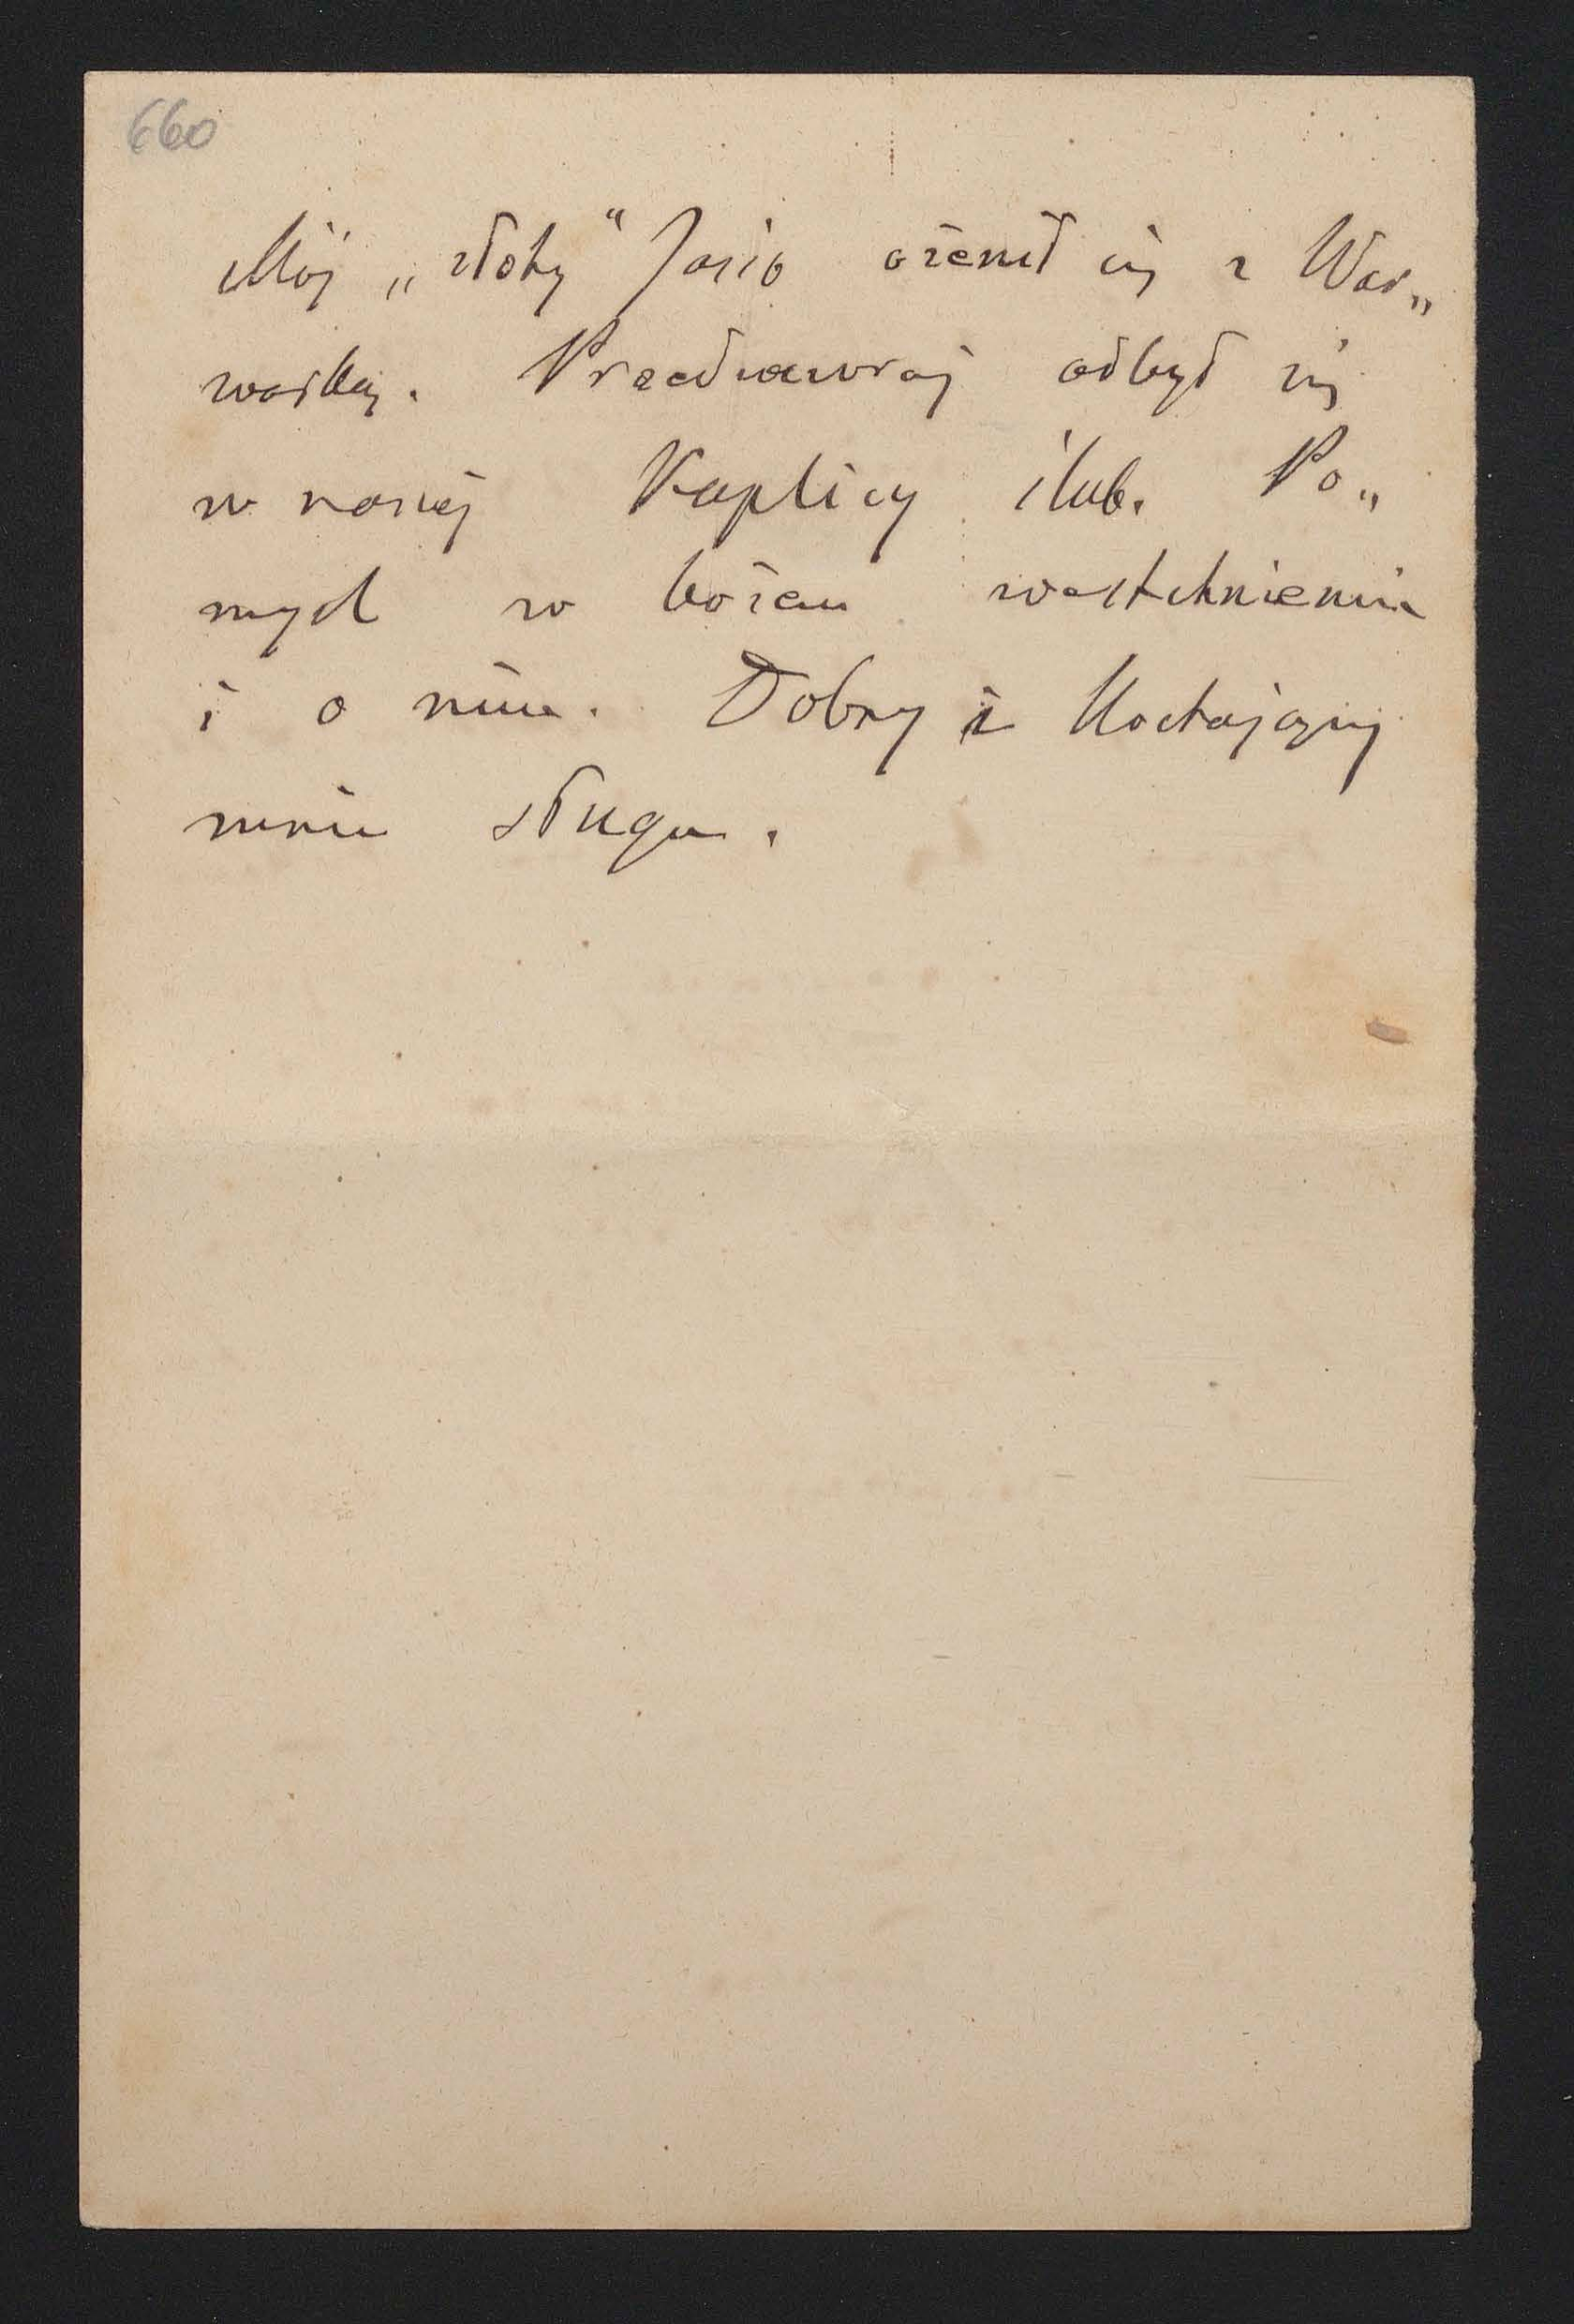 660
Mój „złoty“ Jasio ożenił się z War„
warką. Przedwczoraj odbył się
w naszej Kaplicy ślub. Po„
myśl w bożem westchnieniu
i o nim. Dobry i Kochający
mnie sługa.